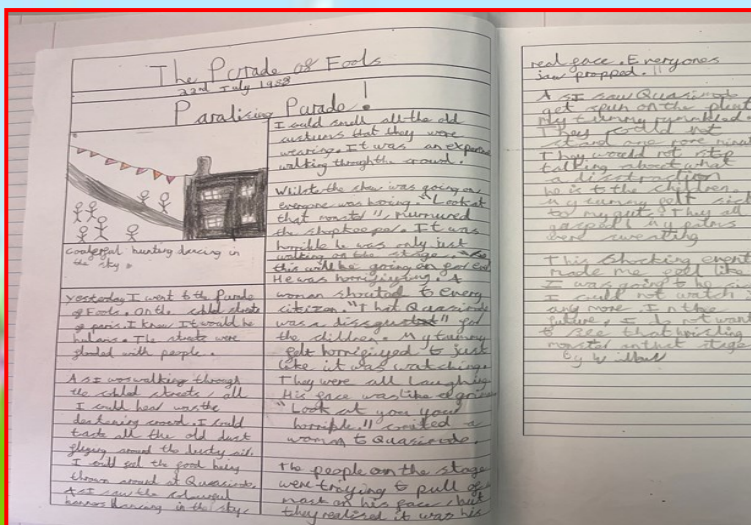 The Parade of Fools
22nd July 1938
Paralising Parade!
Coulgerful bunting dancing in
the sky.
Yesterday I went to the Parade
of Fools. On the streets
of paris. I knew It would be
. The streets were
with people.
As I was walking through
the streets, all
I could hear was the
deafening crowd. I could
taste all the old dust
around the dusty air.
I could feel the food being
thrown around at Quasimodo.
As I saw the colourful
dancing in the sky,
I could smell all the old
custums that they were
wearing. It was an
walking through the crowd.
Whilst the show was going on
everyone was booing. "Look at
that ", mumured
the shopkeeper. It was
horrible he was only just
walking on the stage.
this will be going on
He was . A
woman shouted to every
citizen. "That Quasimodo
was a disgust" for
the children. My tummy
felt to just
like it was watching.
They were all laughing
His face was like a
"Look at you your
horrible."
woman to Quasimodo.
The people on the stage
were trying to pull of
mask on his face, but
they realised it was his
real face. Everyones
jaw propped.
As I saw Quasimodo
get spun on the
My tummy
They could not
stand one more
They would not stop
talking about what
a disstraction
he is to the children.
My tummy felt sick
to my guts. They all
gasped! My palms
were sweating
This shocking event
made me feel like
I was going to be
I could not watch
any more. In the
future, I do not want
to see that
monster on that stage
By